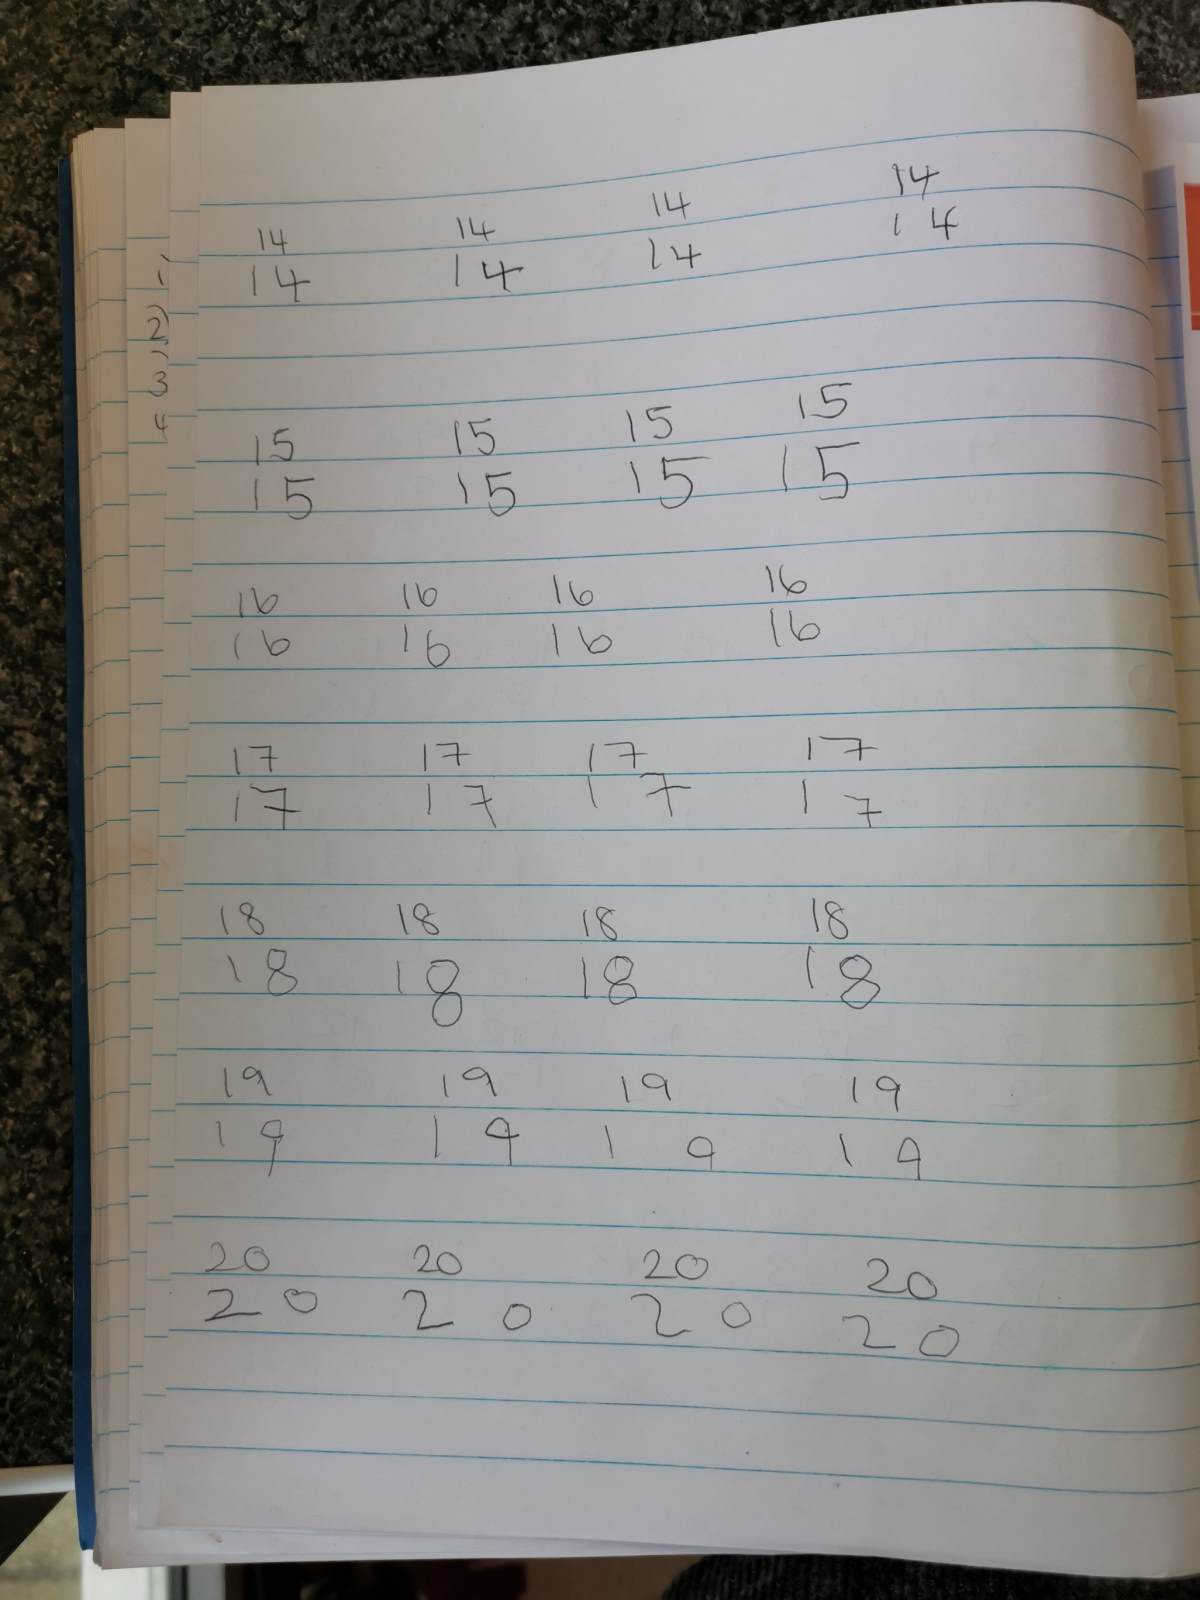 14 14 14 14
14 14 14 14
15 15 15 15
15 15 15 15
16 16 16 16
16 16 16 16
17 17 17 17
17 17 17 17
18 18 18 18
18 18 18 18
19 19 19 19
19 19 19 19
20 20 20 20
20 20 20 20
1)
2)
3
4